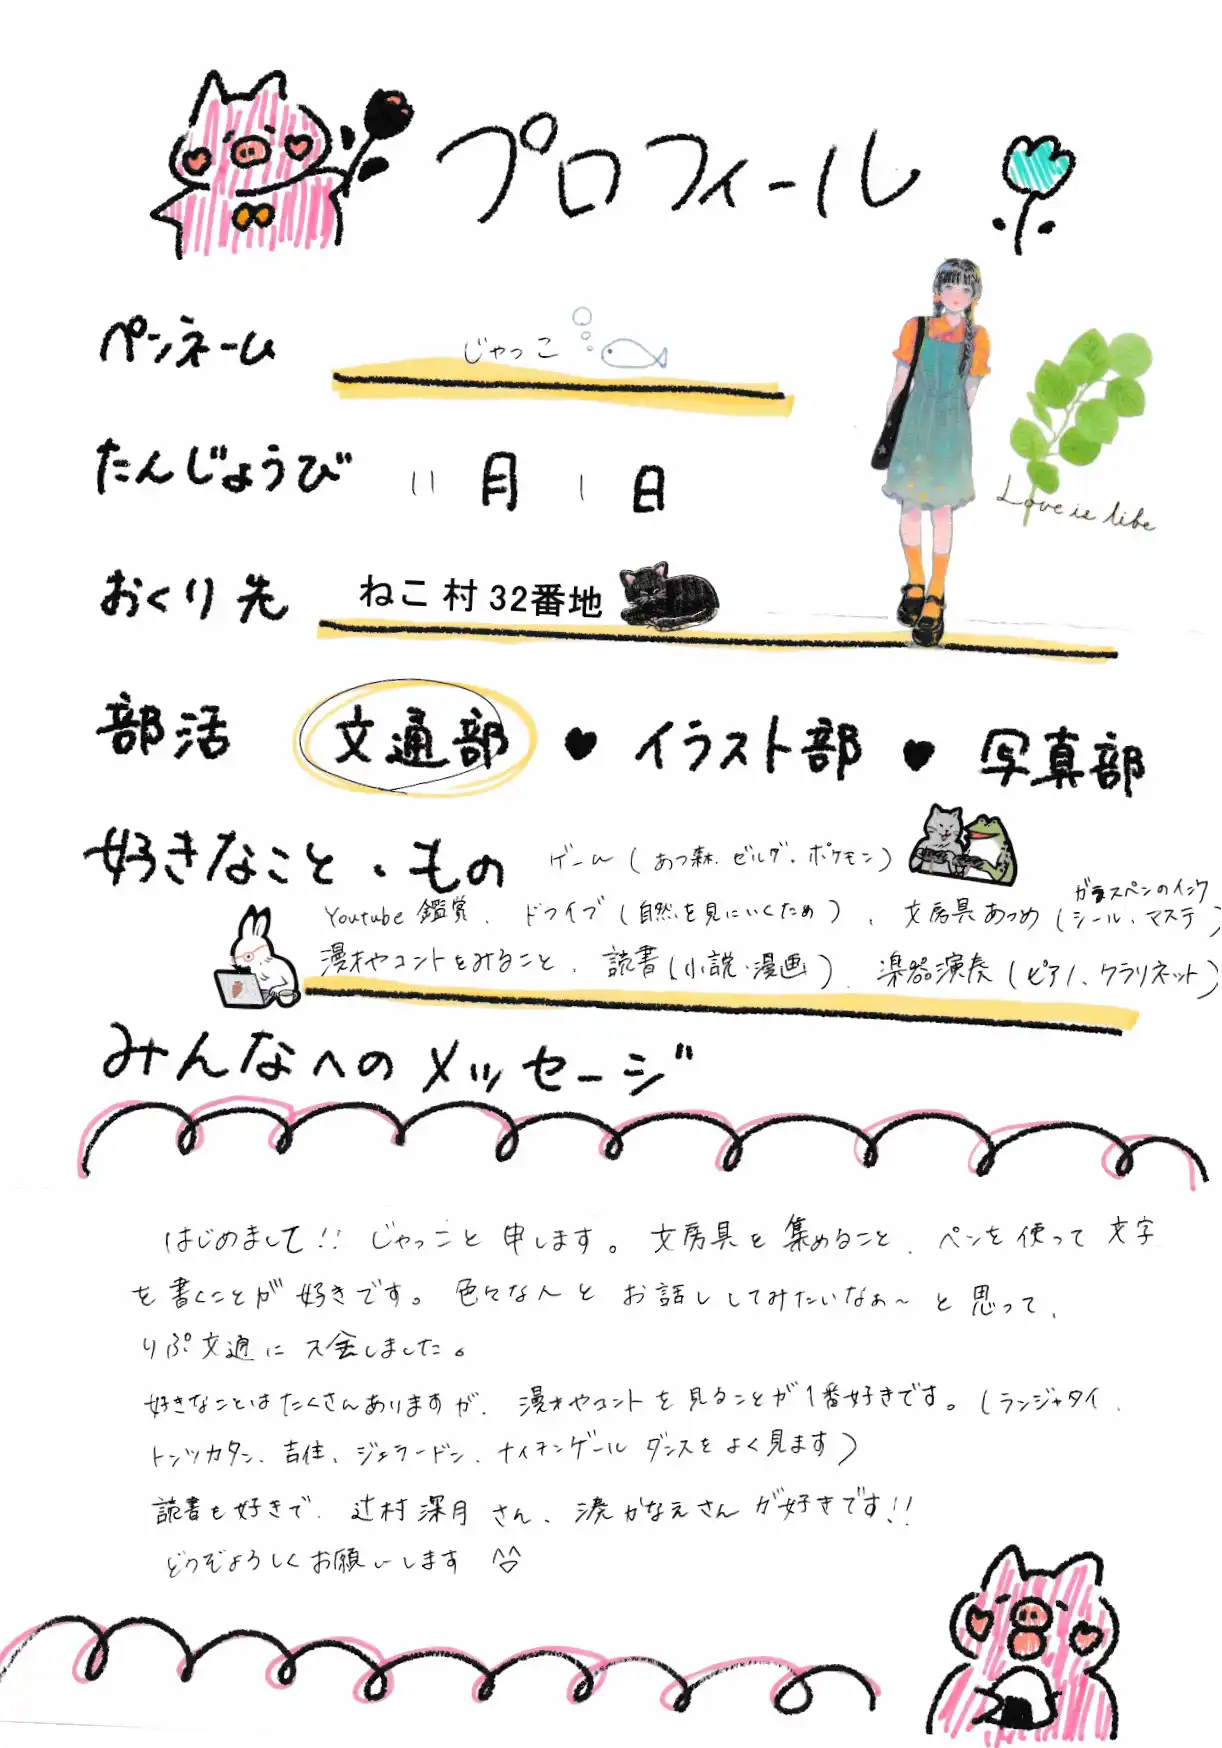 プロフィール
ペンネーム じゃっこ
たんじょうび 11月1日
Love is libe
おくり先 ねこ村32番地
部活 文通部 ♥ イラスト部 ♥ 写真部
好きなこと・もの ゲーム(あつ森、ゼルダ、ポケモン)
ガラスペンのインク
Youtube鑑賞、ドライブ(自然を見にいくため)、文房具あつめ(シール、マステ)
漫才やコントをみること、読書(小説・漫画)、楽器演奏(ピアノ、クラリネット)
みんなへのメッセージ
はじめまして!! じゃっこと申します。文房具を集めること、ペンを使って文字
を書くことが好きです。色々な人とお話ししてみたいなぁ〜と思って、
りぷ文通に入会しました。
好きなことはたくさんありますが、漫才やコントを見ることが1番好きです。(ランジャタイ、
トンツカタン、吉住、ジェラードン、ナイチンゲールダンスをよく見ます)
読書も好きで、辻村深月さん、湊かなえさんが好きです!!
どうぞよろしくお願いします